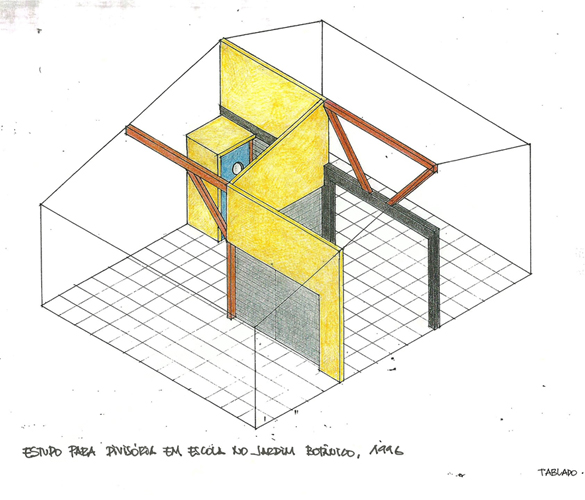 ESTUDO PARA DIVISÓRIA EM ESCOLA NO JARDIM BOTÂNICO, 1996
TABLADO.